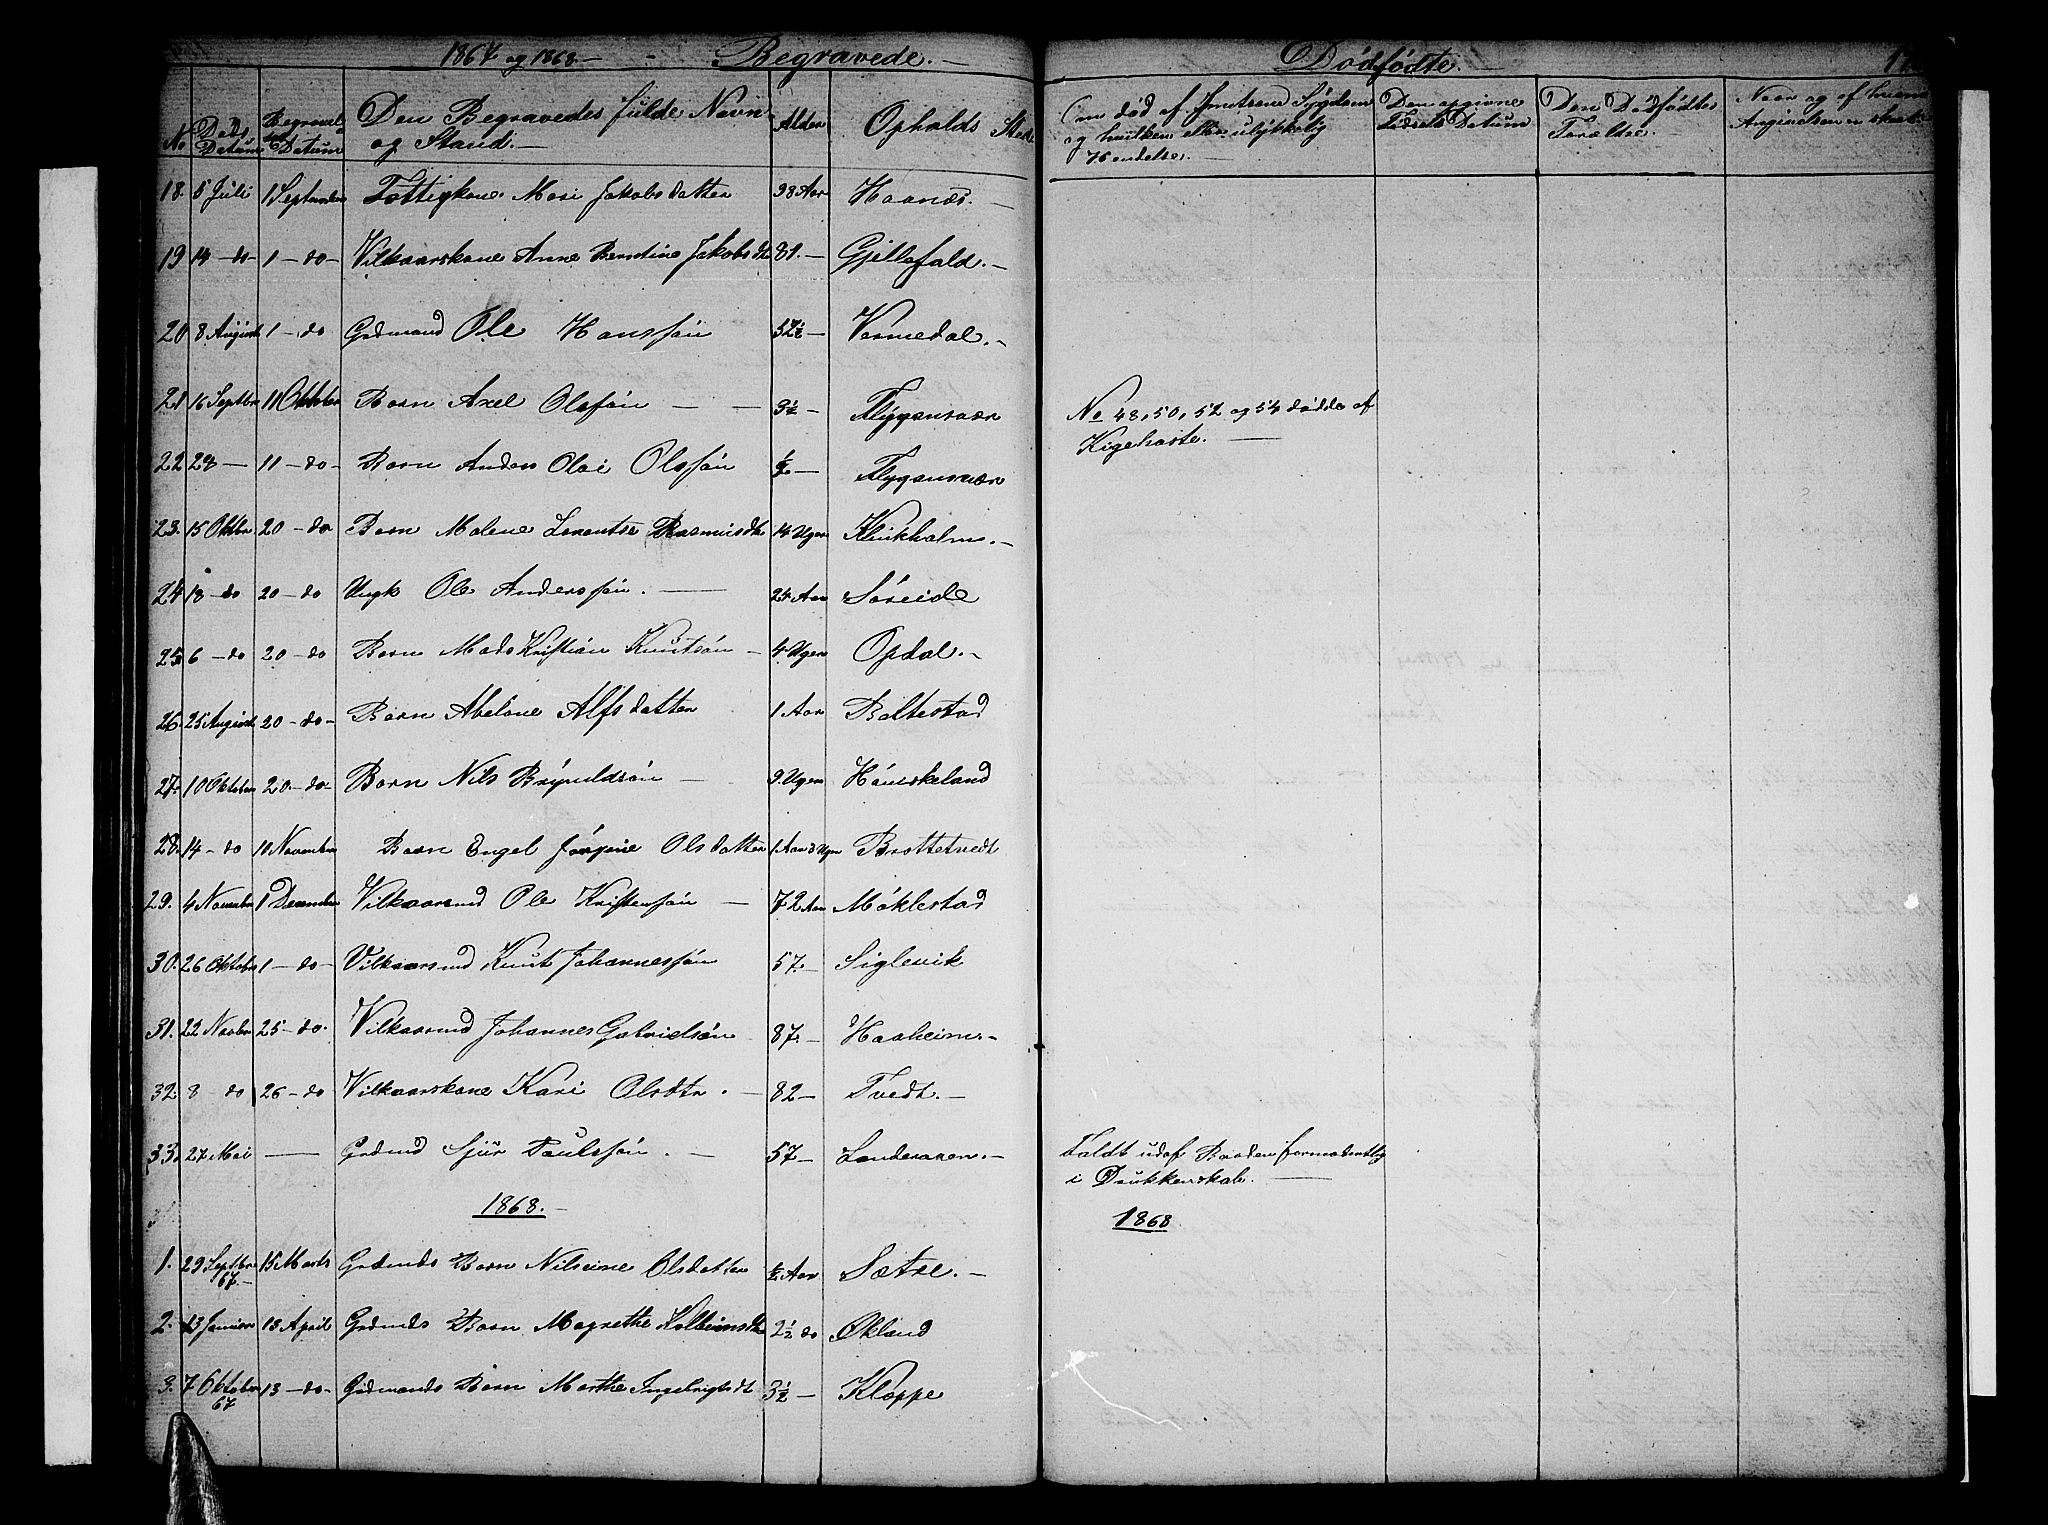 1867 og 1868 — Begravede. —
No Døds Datum Begravel. Datum Den Begravedes fulde Navn og Stand. — Alder Opholds Sted
18. 5 Juli 1 September Fattigkone Mari Jakobsdatter 98 Aar Haanæs. —
19 14 - do - 1 - do - Vilkaarskone Anne Berntine Jakobsdtr 81. — Gjillefald. —
20 8 August 1 - do Grdmand Ole Hansføn 52½ — Vermedal. —
21 16 Septbr 11 Oktober Barn Axel Olsføn — — 3½ — Flygansvær
22 29 — 11 - do - Barn Anders Olai Olsføn ½ — Flygansvær
23. 15 Oktbr. 20 - do Barn Malene Lorentse Rasmusdtr 14 Uger Klinkholm. —
24 18 - do 20 - do Ungk Ole Andersføn. — 24 Aar Søreide
25 6 - do 20 - do Barn Mads Kristian Knutsøn — 4 Uger Opdal. —
26. 25 August 20 - do - Barn Abelone Alfsdatter 1 Aar Baltestad
27. 10 Oktober 20 - do - Barn Nils Brynildsøn — 9. Uger Haueskeland
28. 14 - do 10 November Barn Engel Jørgine Olsdatter 1 Aar 3 Uger Brottetvedt
29. 4 Novembr 1 December Vilkaarsmd Ole Kristensføn — 72 Aar Møklestad
30. 26 Oktober 1 - do - Vilkaarsmd Knut Johannesføn 57. — Siglevik
31. 22 Novbr 25 - do. Vilkaarsmd Johannes Gabrielsøn 87. — Haaheim. —
32 8 - do 26 - do Vilkaarskone Kari Olsdtr. — 82 — Tvedt. —
33. 27 Mai — Grdmd Sjur Paulsføn. — 57 — Landeraaen. —
1868. —
1. 29 Septbr 67. — 15 Marts Grdmds Barn Nilsine Olsdatter ½ Aar Sætre. —
2. 13 Januar 13 April Grdmds Barn Magrethe Kolbeinsdtr 2½ do Økland
3. 7 Oktober 67 13 - do - Grdmands Barn Marthe Ingebrigtsdt 3½ — Kleppe
Dødfødte. —
Om død af Smitsom Sygdom og hvilken eller ulykkelig Hændelse. —
Den opgivne Fødsels Datum
Den Dødfødtes Forældre. —
Naar og af hvem Angivelsen er skeet
No 48, 50, 52 og 54 døde af
Kigehoste. —
Faldt udaf Baaden formodentlig
i Drukkenskab. —
1868.